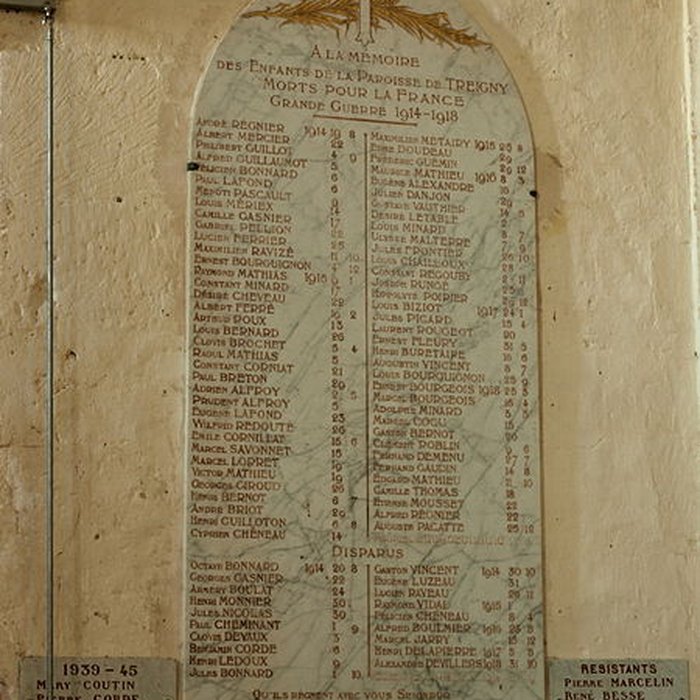 A LA MEMOIRE
DES ENFANTS DE LA PAROISSE DE TREIGNY
MORTS POUR LA FRANCE
GRANDE GUERRE 1914-1918
ANDRÉ REGNIER 1914 19 8
ALBERT MERCIER 22
PHILIBERT GUILLOT 4 9
ALFRED GUILLAUMOT 5
FÉLICIEN BONNARD 6
PAUL LAFOND 6
PASCAULT
LOUIS MÉRIEX
CAMILLE GASNIER 14
GABRIEL PELLION 17
LUCIEN FERRIER 22
MAXIMILIEN RAVIZÉ 25
ERNEST BOURGUIGNON 11 10
RAYMOND MATHIAS 4 12
CONSTANT MINARD 1915
DÉSIRÉ CHEVEAU 17
ALBERT FERRÉ 22
ARTHUR ROUX 10 2
LOUIS BERNARD 13
CLOVIS BROCHET 26
RAOUL MATHIAS 5 4
CONSTANT CORNIAT 5
PAUL BRETON 21
ADRIEN ALFROY 29
PRUDENT ALFROY 2 5
EUGÈNE LAFOND 5
WILFRID REDOUTÉ 23
EMILE CORNILLAT 26
MARCEL SAVONNET 15 6
MARCEL LORRET 15
VICTOR MATHIEU 19
GEORGES GIROUD 19
HENRI BERNOT 26
ANDRÉ BRIOT
HENRI GUILLOTON 6 8
CYPRIEN CHÉNEAU 14
MAXIMILIEN METAIRY 1915 25 8
DOUDEAU 29
FRÉDÉRIC GUEMIN 29 12
MAURICE MATHIEU 1916 8 3
EUGÈNE ALEXANDRE
JULIEN DANJON
GUSTAVE VAUTHIER 29
DÉSIRÉ LETABLE 14 5
LOUIS MINARD
ULYSSE MALTERRE 7
JULES FRONTIER 7 9
LOUIS CHAILLOUX 26 10
CONSTANT REGOUBY 28
JOSEPH RUNGE 2 11
HIPPOLYTE POIRIER
LOUIS BIZIOT 12
JULES PICARD 1917 24 1
LAURENT ROUGEOT 15 4
ERNEST FLEURY 20
HENRI BURETAIRE 31 5
AUGUSTIN VINCENT 16 6
LOUIS BOURGUIGNON 8 7
ERNEST BOURGEOIS 1918 25
MARCEL BOURGEOIS
ADOLPHE MINARD
MARCEL COQU
GASTON BERNOT 15
CLÉMENT ROBLIN 26
FERNAND DEMENU
FERNAND GAUDIN
EDGARD MATHIEU
CAMILLE THOMAS 18
ETIENNE MOUSSET 22
ALFRED REGNIER 22
AUGUSTE PACATTE 25 12
DISPARUS
OCTAVE BONNARD 1914 20 8
GEORGES GASNIER 22
BOULAT 24
HENRI MONNIER 30
JULES NICOLAS 30
PAUL CHEMINANT 1 9
CLOVIS DEVAUX 3
BENJAMIN CORDE 6
HENRI LEDOUX 9
JULES BONNARD 1 10
GASTON VINCENT 1914 30 10
EUGÈNE LUZEAU 31
LUCIEN RAVEAU 26 11
RAYMOND VIDAL 1915 1
FÉLICIEN CHÉNEAU 8 4
ALFRED BOULMIER 1916
MARCEL JARRY 12
HENRI DELAPIERRE 1917 5
ALEXANDRE DEVILLERS 1918 31 10
QU'ILS REGNENT AVEC VOUS SEIGNEUR
1939 - 45
MARY COUTIN
PIERRE CORDE
RESISTANTS
PIERRE MARCELIN
RENÉ BESSE